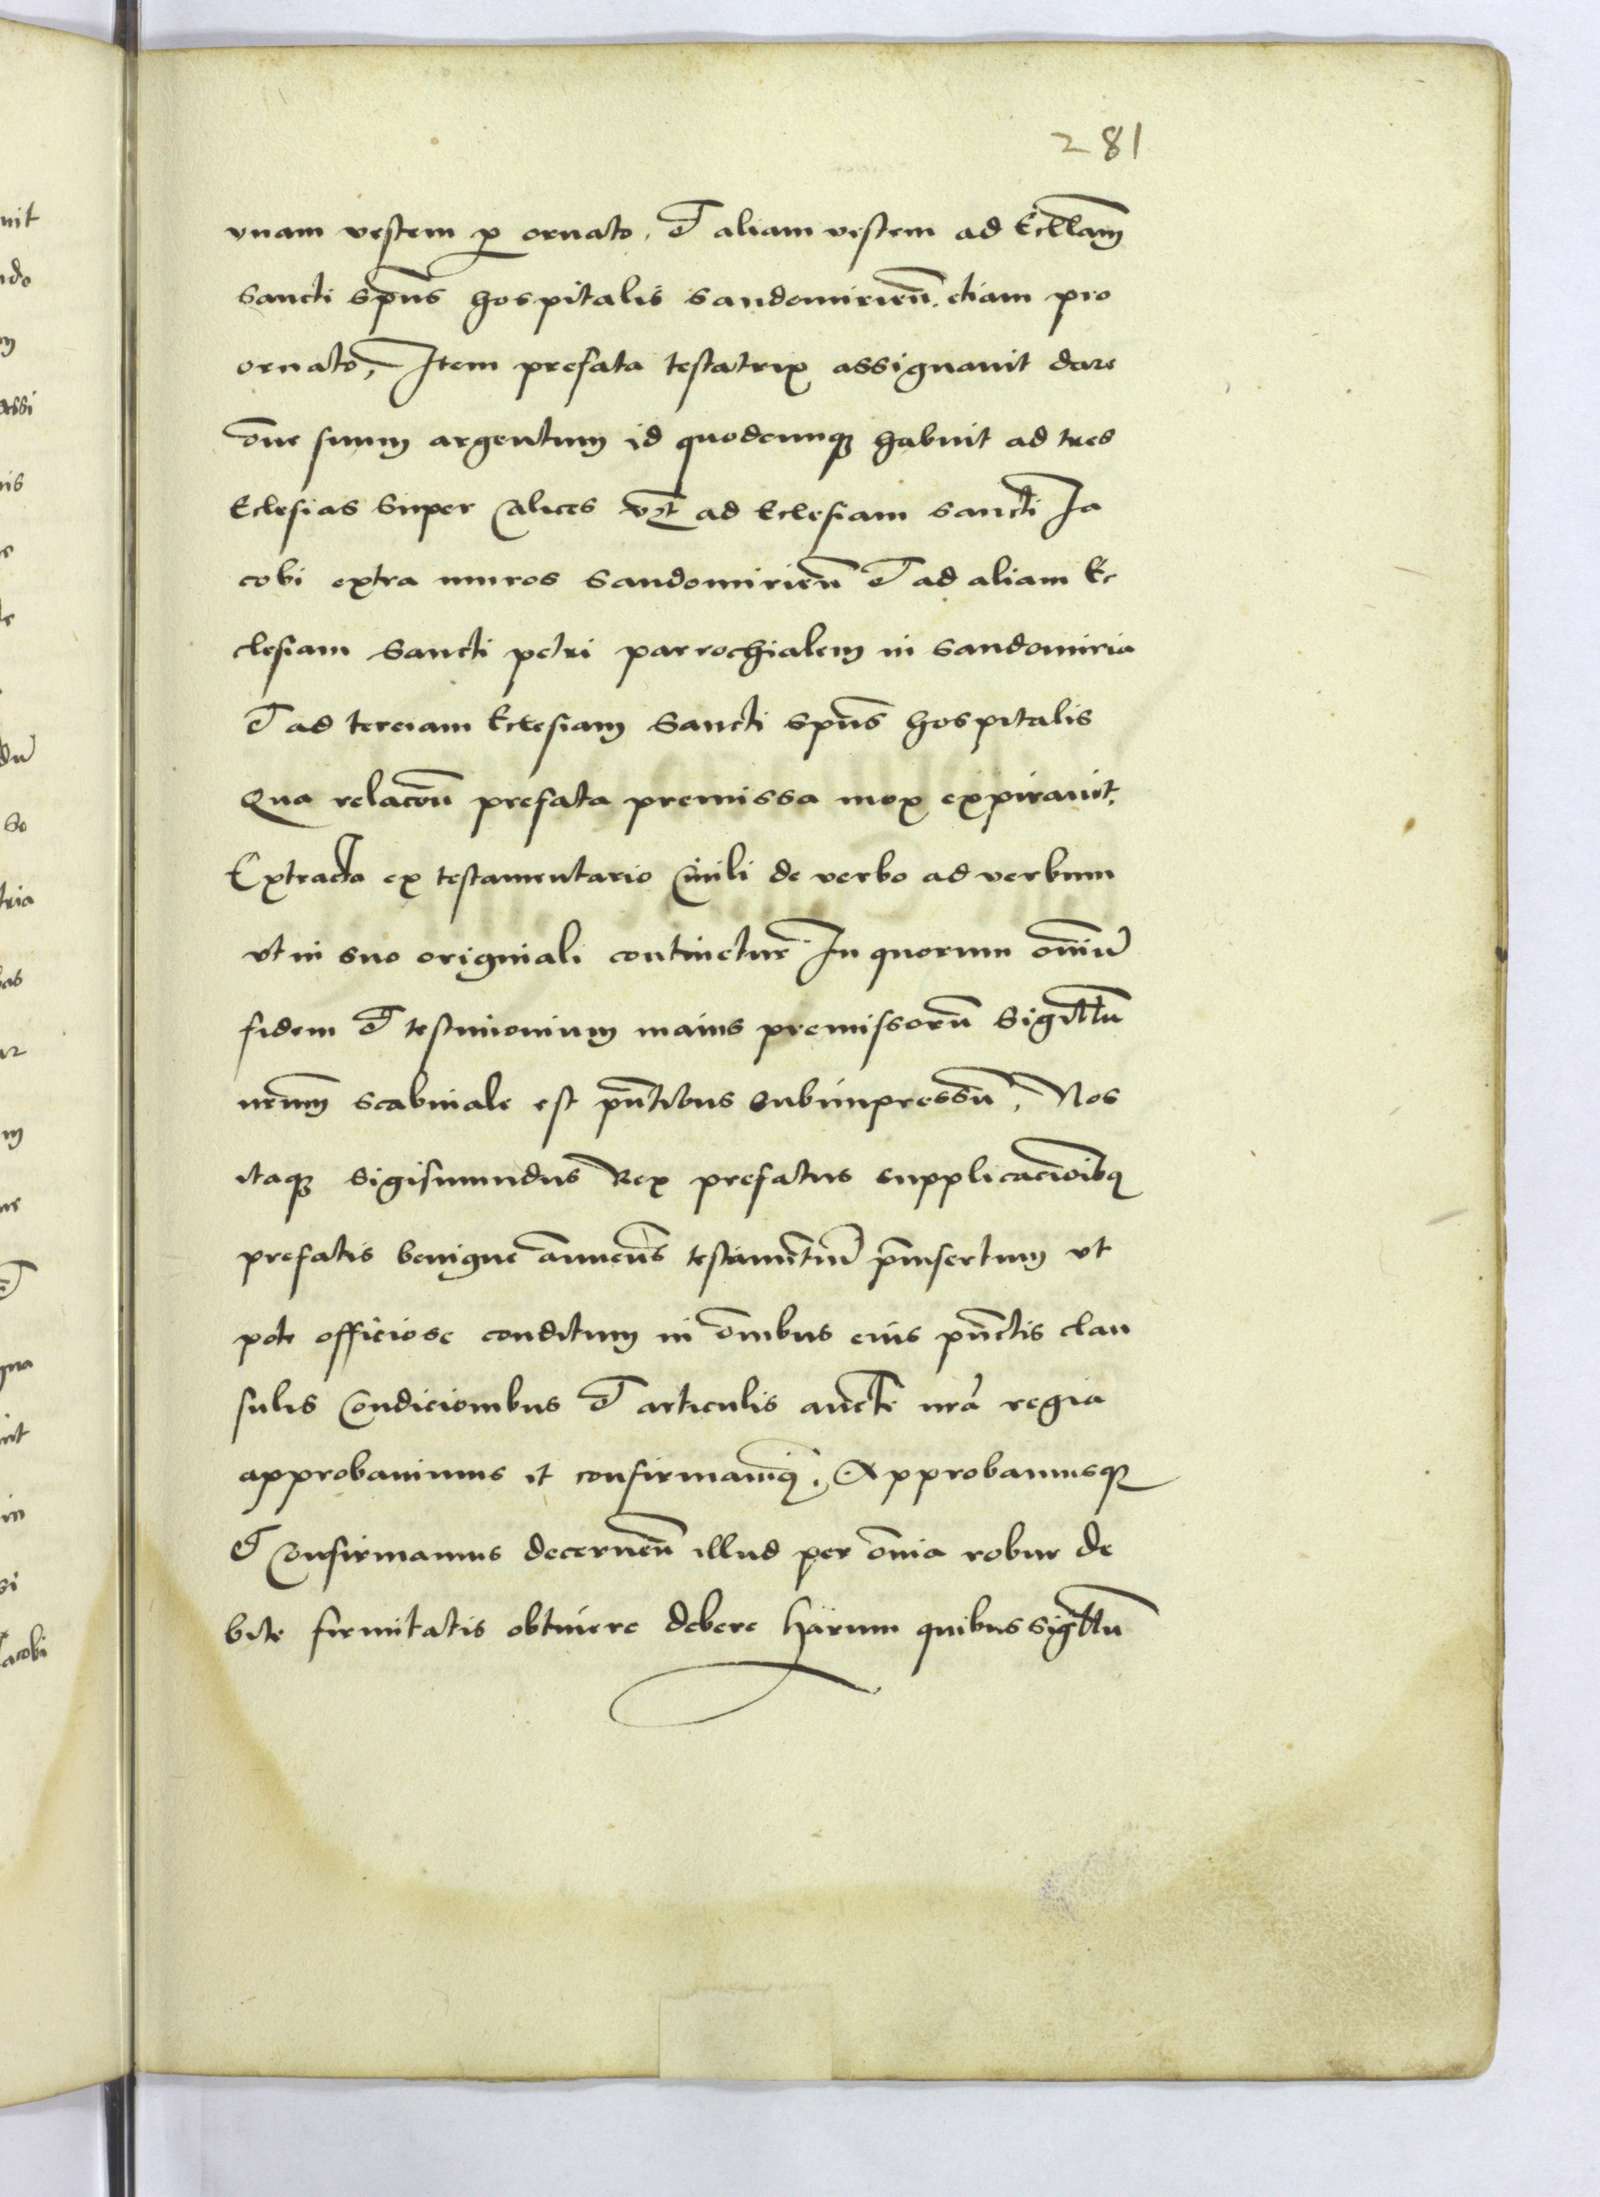 281
vnam vestem p ornato, et aliam vestem ad Eccl̃iam
Sancti Spũs hospitalis Sandomirien̄. etiam pro
ornato, Item prefata testatrix assignauit dare
om̃e suum argentum id quodcunqꝫ habuit ad tres
Eclesias Super Calices vꝫt ad Eclesiam Sancti Ja
cobi extra muros Sandomirien̄ et ad aliam Ec
clesiam Sancti petri parrochialem in Sandomiria
et ad terciam Eclesiam Sancti Spũs hospitalis
Qua relacõn prefata premissa mox expirauit.
Extracta ex testamentario Ciuili de verbo ad verbum
vt in suo originiali continetur In quorum om̃iũ
fidem et testimonium maius premissorũ Sigillũ
nr̃um scabinale est pñtibus Subimpressũ, Nos
itaqꝫ Sigismundus Rex prefatus supplicaciõibꝫ
prefatis benigne annuen̄s testamẽtũ p̃insertum vt
pote officiose conditum in om̃ibus eius pũctis clau
sulis Condicionibus et articulis aucte nr̃a regia
approbauimus et confirmauimꝫ, Approbamusqꝫ
et Confirmamus decernen̄ illud per om̃ia robur de
bite firmitatis obtinere debere Harum quibus Sigillũ